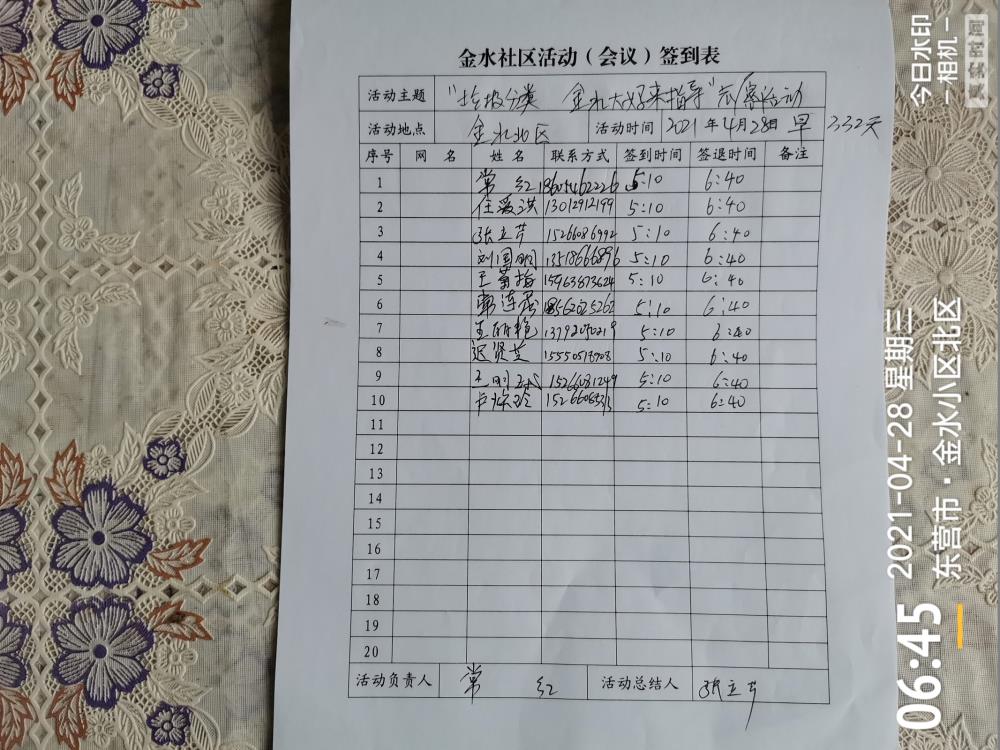 金水社区活动（会议）签到表
活动主题 "垃圾分类 金水大妈来指导" 活动
活动地点 金水北区 活动时间 2021年4月28日 早 332天
序号 网名 姓名 联系方式 签到时间 签退时间 备注
1 常红 18605462226 5:10 6:40
2 任爱洪 13012912199 5:10 6:40
3 张立芹 15266086992 5:10 6:40
4 刘国明 13518666896 5:10 6:40
5 王菊梅 15963873624 5:10 6:40
6 18562025262 5:10 6:40
7 王丽艳 5:10 6:40
8 迟贤芝 15550518908 5:10 6:40
9 王明 15266081249 5:10 6:40
10 5:10 6:40
11
12
13
14
15
16
17
18
19
20
活动负责人 常红 活动总结人 张立芹
06:45
2021-04-28 星期三
东营市·金水小区北区
今日水印
相机
真实时间